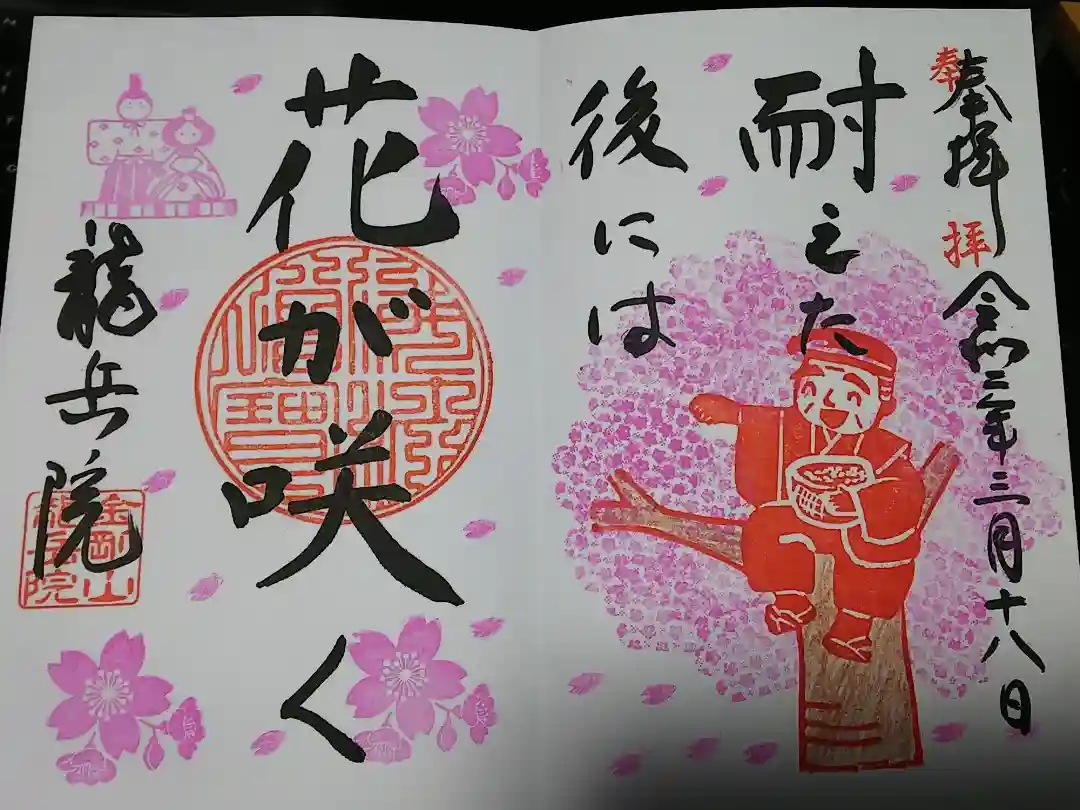 奉拝
奉拝 令和三年三月十八日
耐えた
後には
花が咲く
龍岳院
金剛山
龍岳院